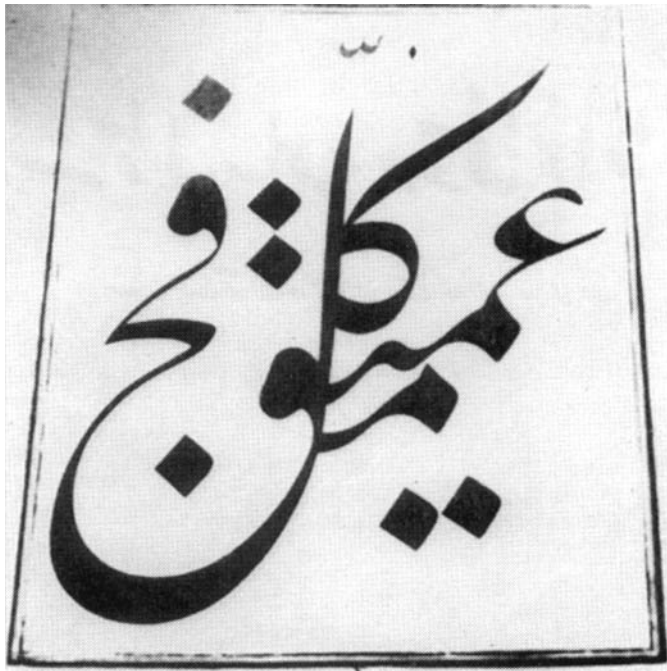 كل فج عميق